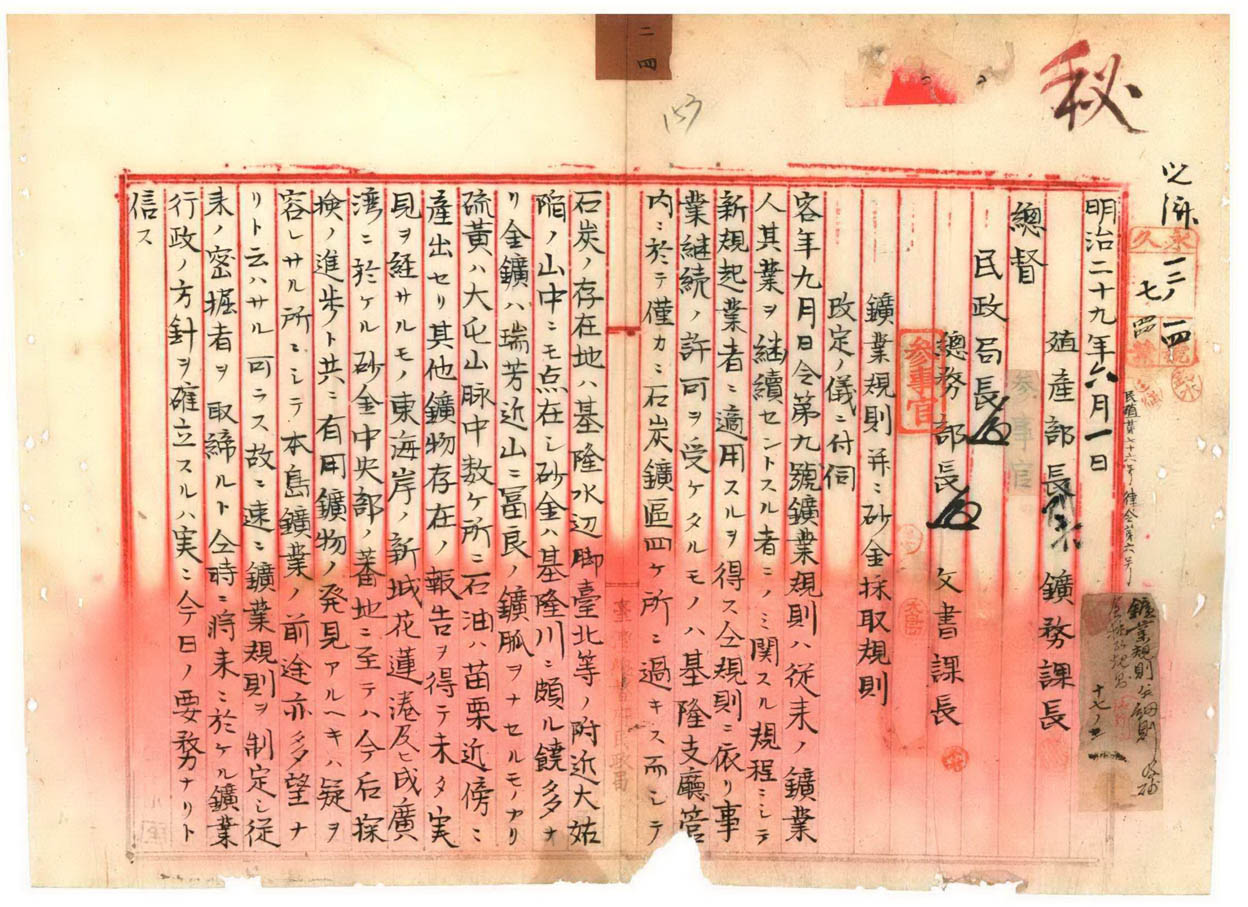 秘
二四
明治二十九年六月一日
殖產部長 鑛務課長
總督
民政局長
總務部長 文書課長
參事官
參事官
鑛業規則並ニ砂金採取規則
改定ノ儀ニ付伺
客年九月日令第九號鑛業規則ハ従来ノ鑛業
人其業ヲ継續セントスル者ニノミ関スル規程ニシテ
新規起業者ニ適用スルヲ得ス仝規則ニ依リ事
業継続ノ許可ヲ受ケタルモノハ基隆支廳管
内ニ於テ僅カニ石炭鑛區四ケ所ニ過キス而シテ
石炭ノ存在地ハ基隆水辺脚臺北等ノ附近大姑
陥ノ山中ニモ点在シ砂金ハ基隆川ニ頗ル饒多ナ
リ金鑛ハ瑞芳近山ニ冨良ノ鑛脈ヲナセルモノアリ
硫黄ハ大屯山脉中数ケ所ニ石油ハ苗栗近傍ニ
產出セリ其他鑛物存在ノ報告ヲ得テ未タ実
見ヲ経サルモノ東海岸ノ新城花蓮港及ヒ成廣
湾ニ於ケル砂金中央部ノ蕃地ニ至テハ今后探
檢ノ進歩ト共ニ有用鑛物ノ発見アルヘキハ疑ヲ
容レサル所ニシテ本島鑛業ノ前途亦多望ナ
リト云ハサル可ラス故ニ速ニ鑛業規則ヲ制定シ従
来ノ密掘者ヲ取締ルト仝時ニ將来ニ於ケル鑛業
行政ノ方針ヲ確立スルハ実ニ今日ノ要務ナリト
信ス